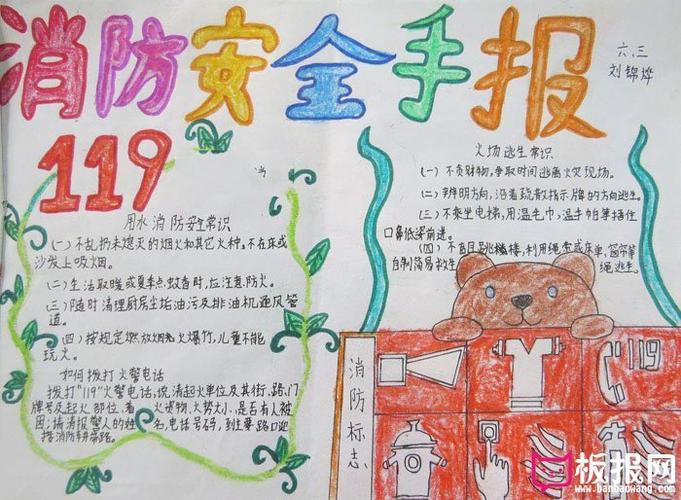 消防安全手报
六.三
刘锦烨
119
用水消防安全常识
(一)不乱扔未熄灭的烟火和其它火种,不在床或
沙发上吸烟。
(二)生活取暖或夏季点蚊香时,应注意防火。
(三)随时清理厨房尘垢油污及排油机通风管
道。
(四)按规定燃放烟火爆竹,儿童不能
玩火。
如何拨打火警电话
拨打“119”火警电话,说清起火单位及其街、路、门
牌号及起火部位、着火货物,火势大小,是否有人被
困;请清报警人的姓名,电话号码,到主要路口迎
接消防车带路。
火场逃生常识
(一)不贪财物,争取时间逃离火灾现场。
(二)辨明方向,沿着疏散指示牌的方向逃生。
(三)不乘坐电梯,用湿毛巾,湿手帕等捂住
口鼻低姿前进。
(四)不盲目跳楼,利用绳索或床单、窗帘等
自制简易救生绳逃生。
消防标志
119
板报网
www.banbaowang.com